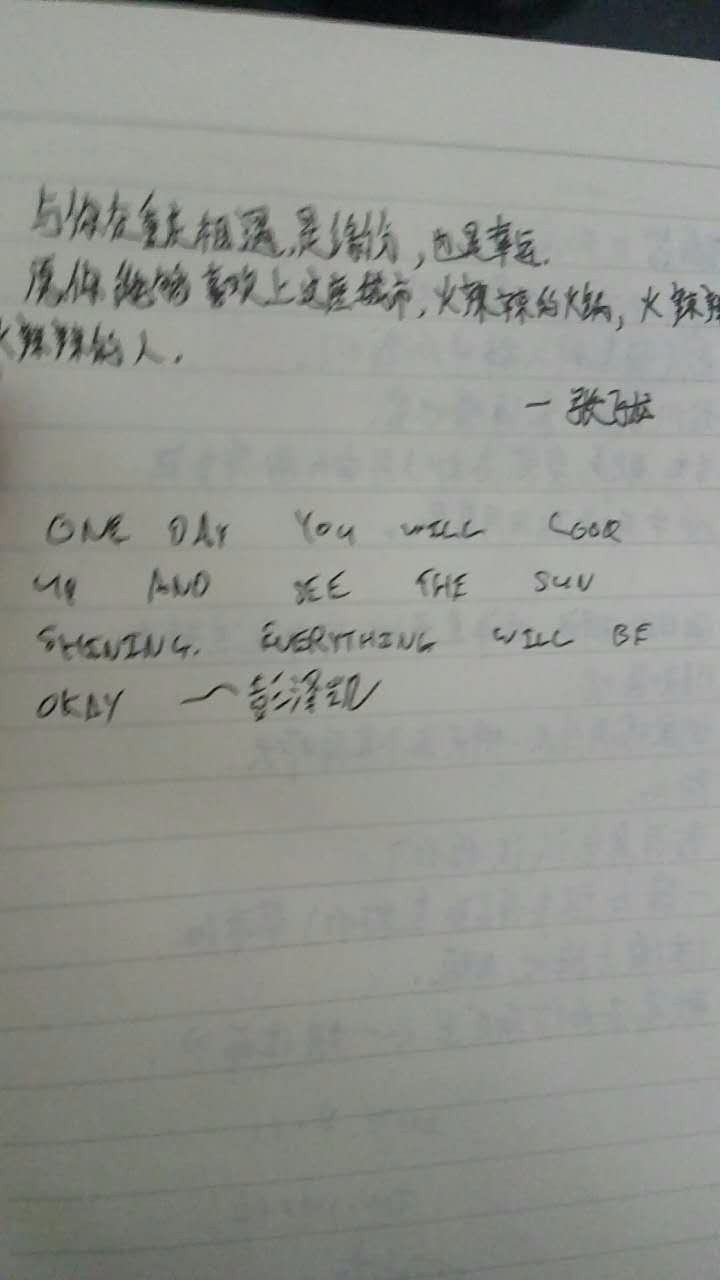 与你在重庆相遇,是缘份,也是幸运.
愿你能够喜欢上这座城市,火辣辣的火锅,火辣辣
火辣辣的人.
一张
ONE DAY YOU WILL LOOK
UP AND SEE THE SUN
SHINING. EVERYTHING WILL BE
OKAY ～彭泽凯